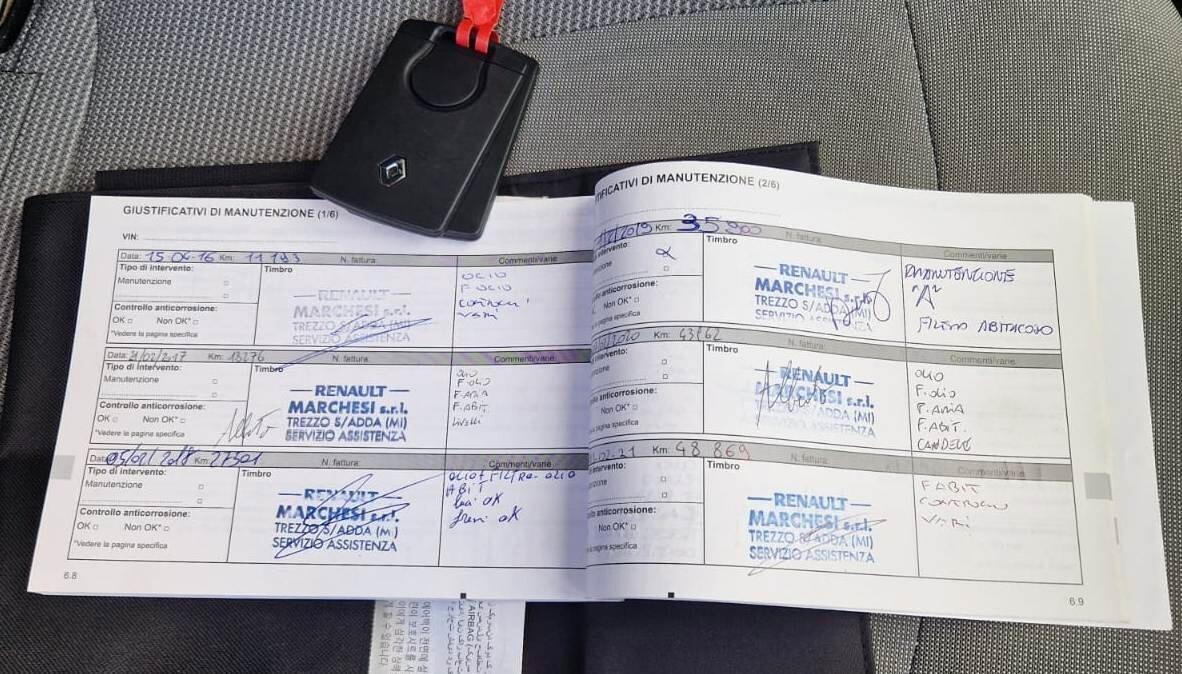 GIUSTIFICATIVI DI MANUTENZIONE (1/6)
VIN:
Data: 15-04-16 Km: 11193 N. fattura: Commenti/varie
Tipo di intervento:
Manutenzione
Controllo anticorrosione:
OK Non OK*
*Vedere la pagina specifica
Timbro
RENAULT
MARCHESI s.r.l.
TREZZO S/ADDA (MI)
SERVIZIO ASSISTENZA
OLIO
F OLIO
CONTROLLI
VARI
Data: 21/02/2017 Km: 18276 N. fattura: Commenti/varie
Tipo di intervento:
Manutenzione
Controllo anticorrosione:
OK Non OK*
*Vedere la pagina specifica
Timbro
RENAULT
MARCHESI s.r.l.
TREZZO S/ADDA (MI)
SERVIZIO ASSISTENZA
OLIO
F.OLIO
F.ARIA
F.ABIT.
Livelli
Data: 05/02/2018 Km: 27301 N. fattura: Commenti/varie
Tipo di intervento:
Manutenzione
Controllo anticorrosione:
OK Non OK*
*Vedere la pagina specifica
Timbro
RENAULT
MARCHESI s.r.l.
TREZZO S/ADDA (MI)
SERVIZIO ASSISTENZA
OLIO+FILTRO OLIO
ABIT
luci OK
freni OK
6.8
TIFICATIVI DI MANUTENZIONE (2/6)
2019 Km: 35900 N. fattura: Commenti/varie
intervento:
nzione
anticorrosione:
Non OK*
la pagina specifica
Timbro
RENAULT
MARCHESI s.r.l.
TREZZO S/ADDA
SERVIZIO
MANUTENZIONE
"A"
FILTRO ABITACOLO
2020 Km: 43762 N. fattura: Commenti/varie
intervento:
nzione
anticorrosione:
Non OK*
la pagina specifica
Timbro
RENAULT
MARCHESI s.r.l.
TREZZO S/ADDA (MI)
SERVIZIO ASSISTENZA
OLIO
F.OLIO
F.ARIA
F.ABIT.
CANDELE
02-21 Km: 48869 N. fattura: Commenti/varie
intervento:
nzione
anticorrosione:
Non OK*
la pagina specifica
Timbro
RENAULT
MARCHESI s.r.l.
TREZZO S/ADDA (MI)
SERVIZIO ASSISTENZA
F ABIT
CONTROLLI
VARI
6.9
AIRBAG